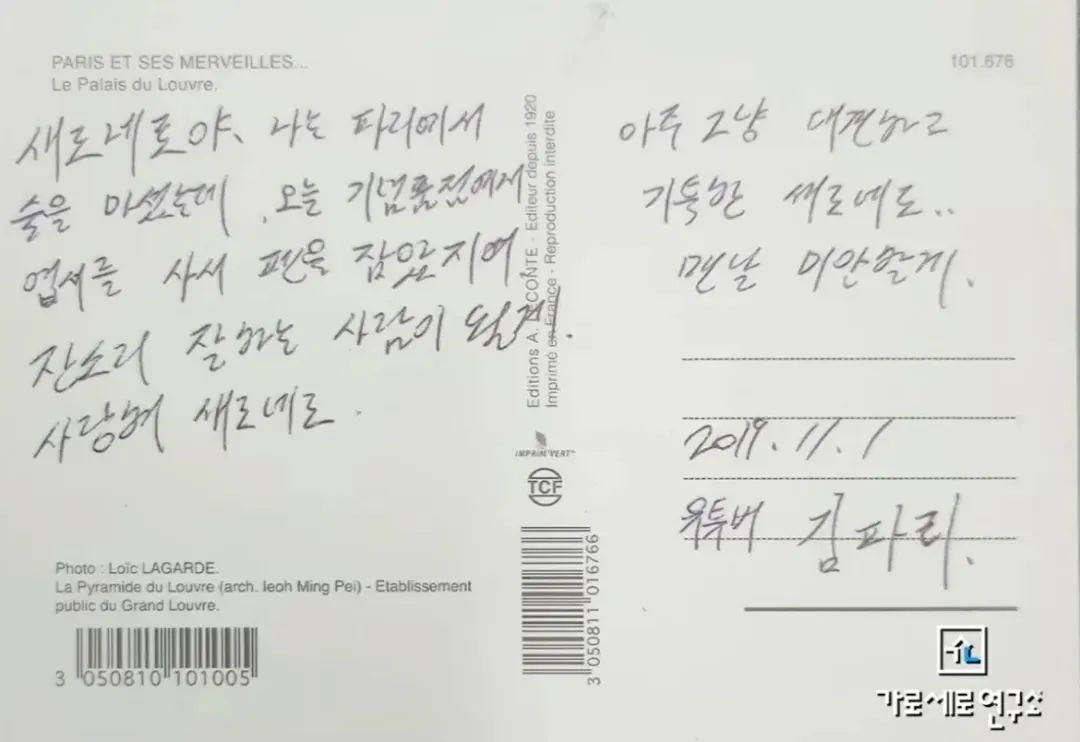 PARIS ET SES MERVEILLES...
Le Palais du Louvre.
101.676
새로네로야, 나는 파리에서
술을 마셨는데, 오늘 기념품점에서
엽서를 사서 펜을 잡았지여.
잔소리 잘하는 사람이 될게.
사랑해 새로네로.
아주 그냥 대견하고
기특한 새로네로..
맨날 미안할게.
2019.11.1
유투버 김파리.
Editions A. LECONTE - Editeur depuis 1920
Imprimé en France - Reproduction interdite
IMPRIM'VERT
TCF
Photo : Loïc LAGARDE.
La Pyramide du Louvre (arch. Ieoh Ming Pei) - Etablissement
public du Grand Louvre.
3 050810 101005
3 050811 016766
가로세로연구소